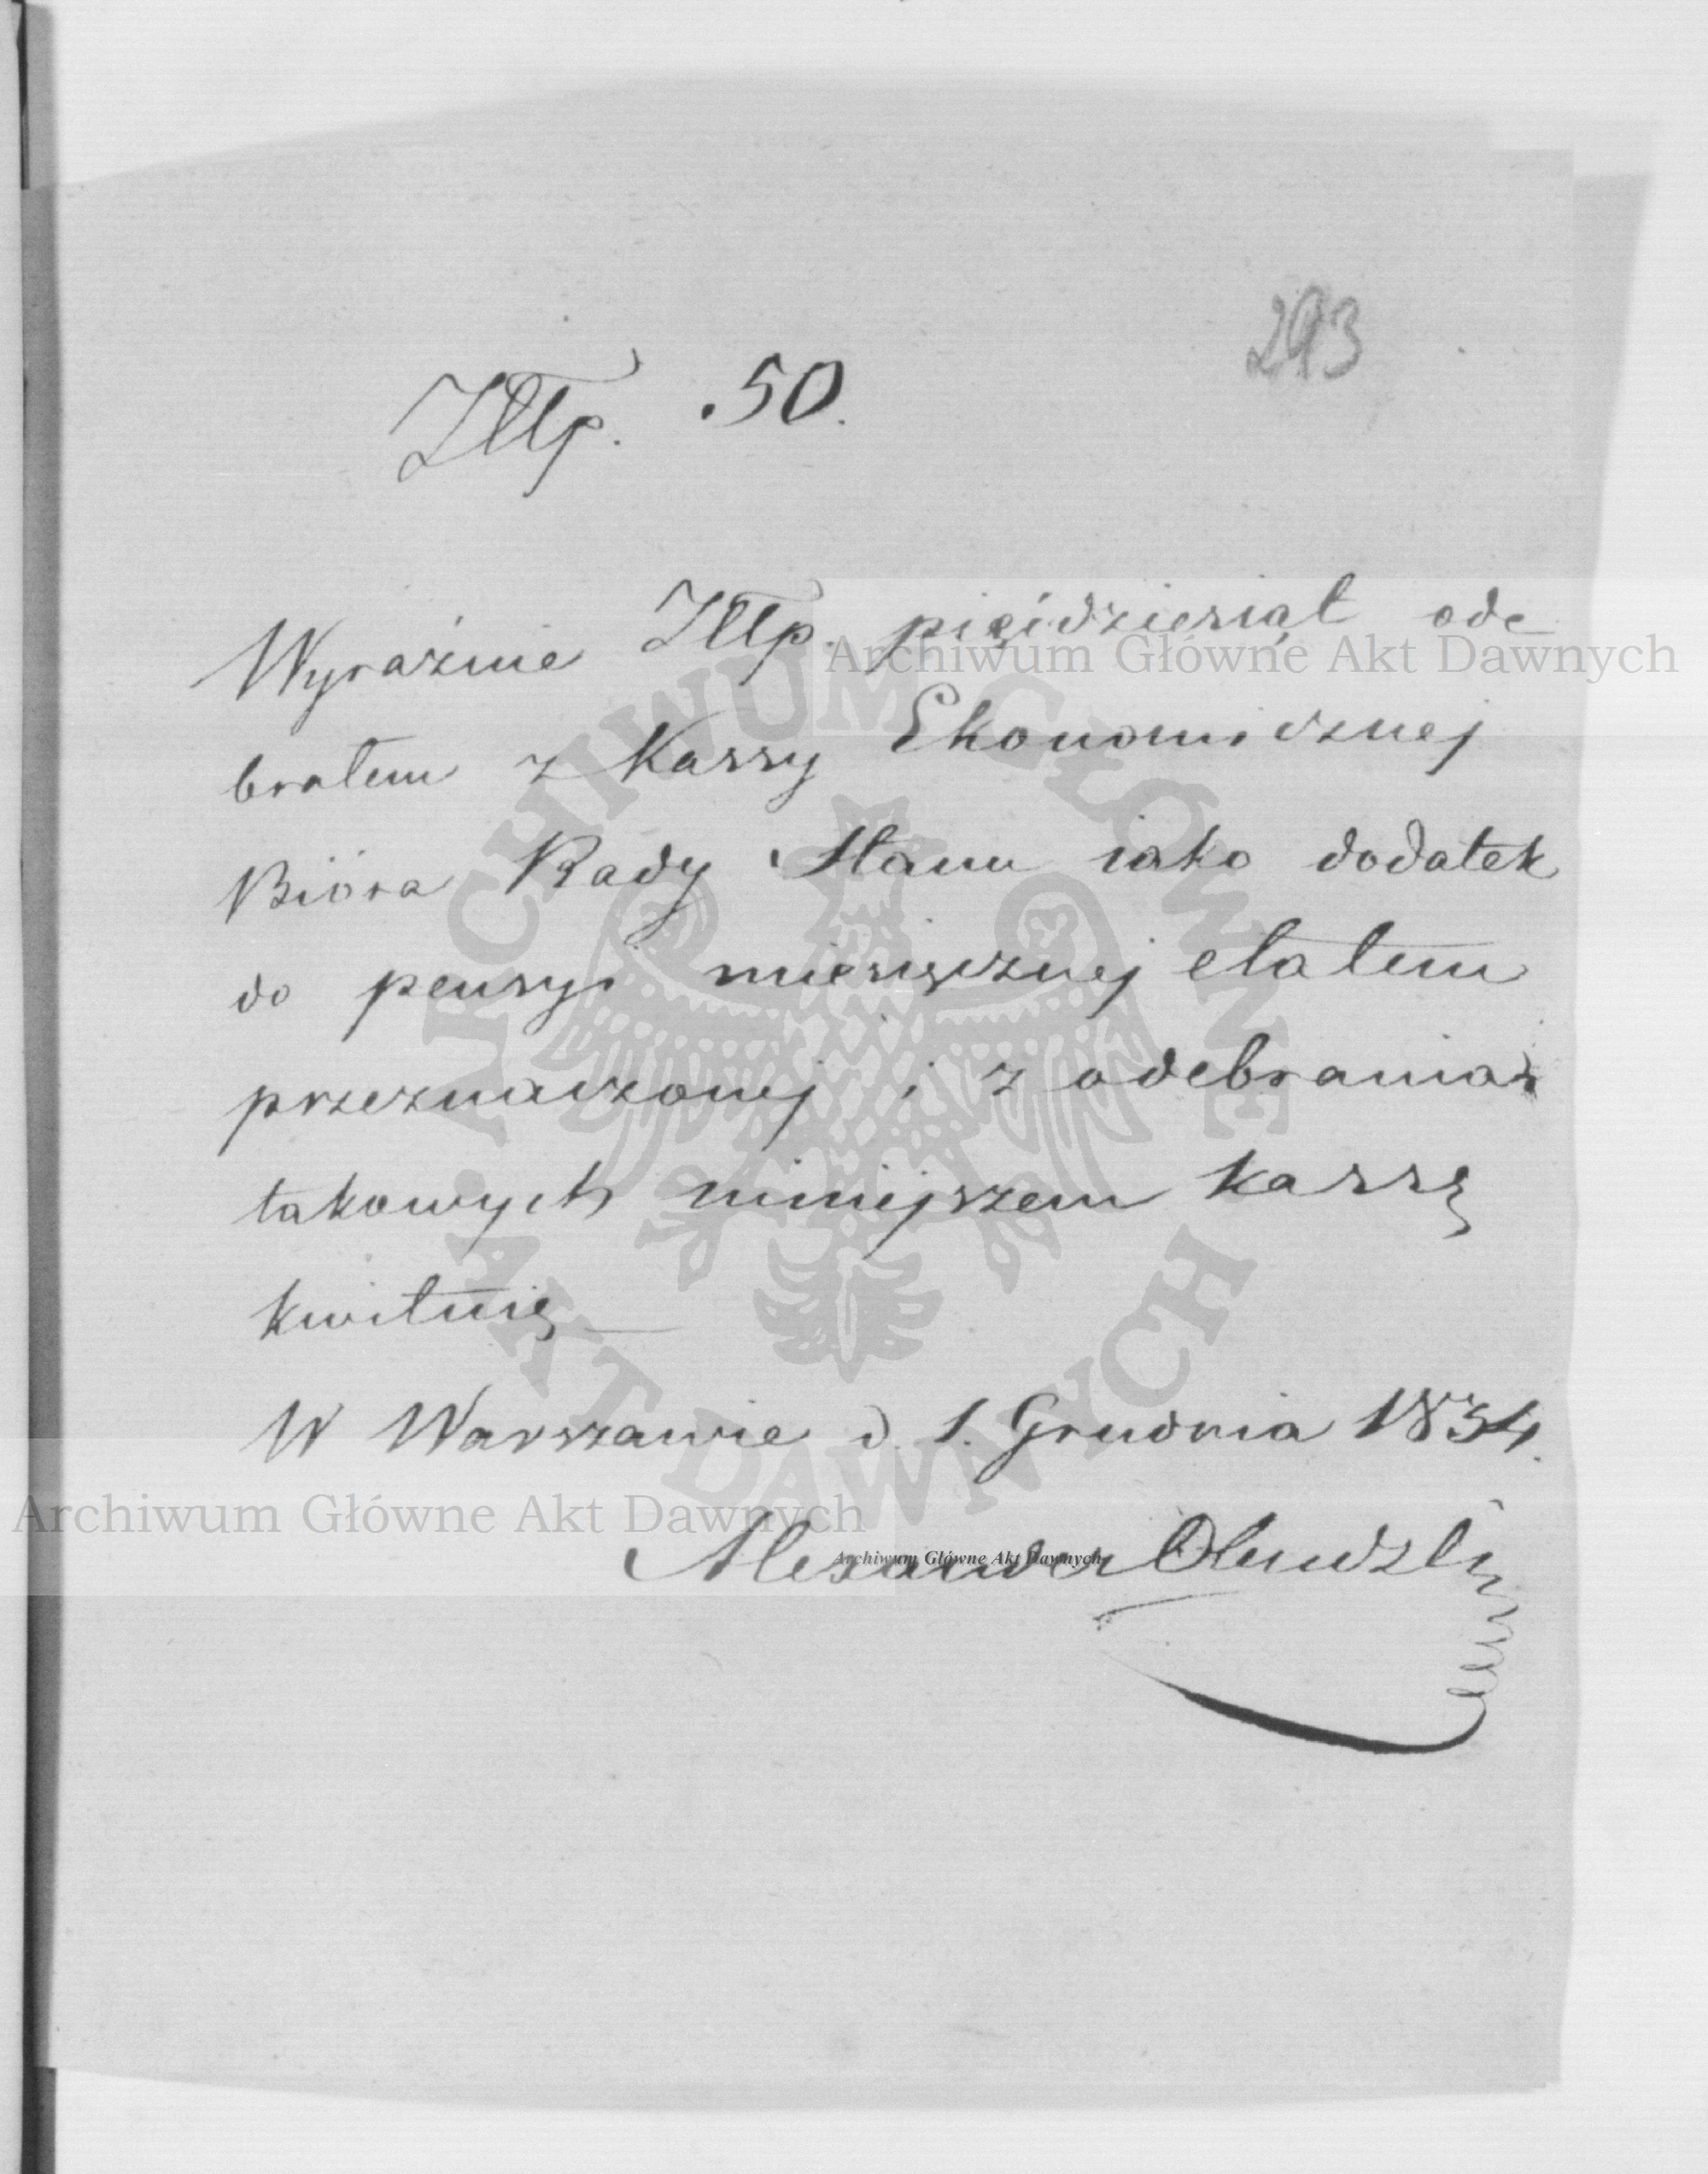 293
Złłp. 50.
Wyraźnie Złłp. pięćdziesiąt ode
brałem z Kassy Ekonomicznej
Biióra Rady Stanu iako dodatek
do pensyi miesięcznej etatem
przeznaczonej i z odebrania
takowych niniejszem Kassę
kwituię
W Warszawie d. 1. Grudnia 1834.
Alexander
Archiwum Główne Akt Dawnych
Archiwum Główne Akt Dawnych
Archiwum Główne Akt Dawnych
ARCHIWUM GŁÓWNE · AKT DAWNYCH ·